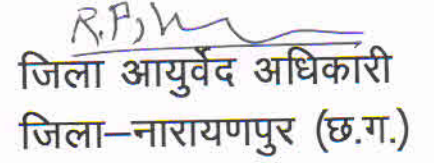 जिला आयुर्वेद अधिकारी
जिला–नारायणपुर (छ.ग.)